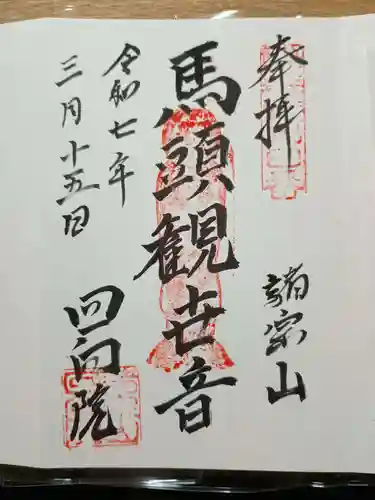 奉拝
諸宗山
馬頭観世音
令和七年
三月十五日
回向院